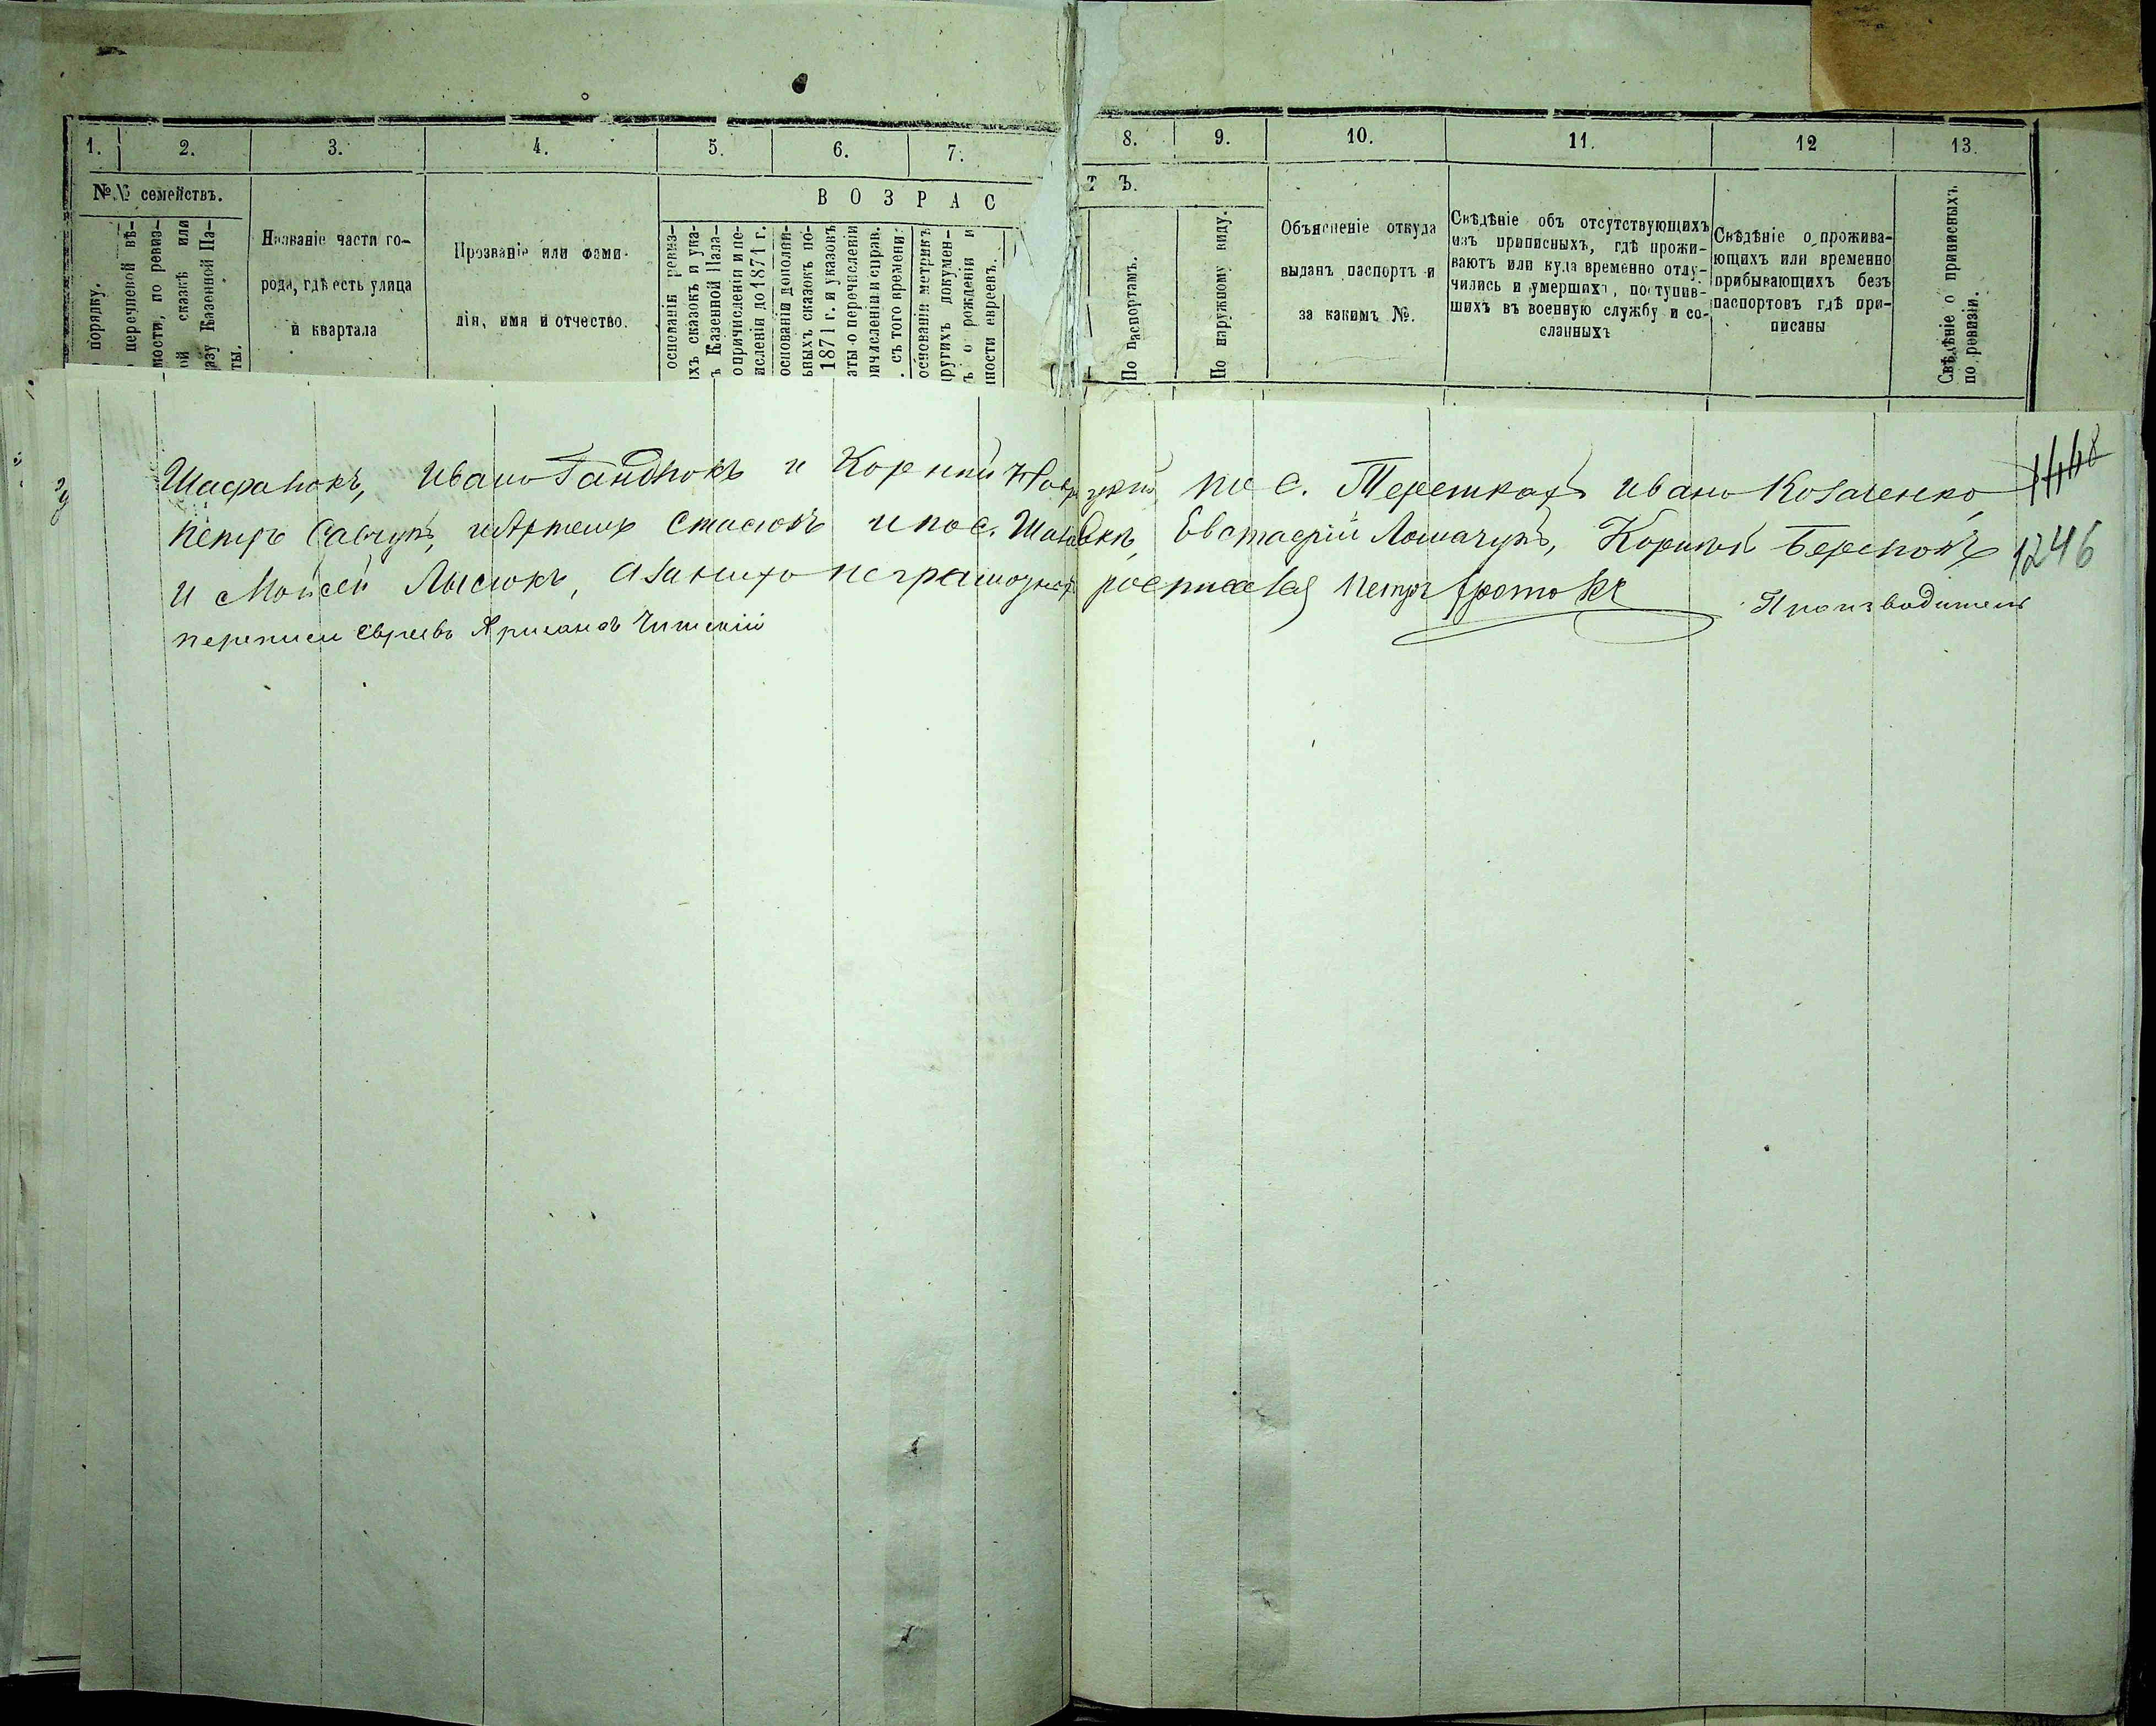 1. 2. 3. 4. 5. 6. 7. 8. 9. 10. 11. 12 13.
№№ семействъ.
порядку.
перечневой вѣ-
мости, по ревиз-
ой сказкѣ или
азу Казенной Па-
ты.
Названіе части го-
рода, гдѣ есть улица
и квартала
Прозваніе или фами-
лія, имя и отчество.
ВОЗРАС
основаніи ревиз-
ихъ сказокъ и ука-
ъ Казенной Пала-
о причисленіи и пе-
исленіи до 1871 г.
основаніи дополни-
ьныхъ сказокъ по-
1871 г. и указовъ
аты о перечисленіи
ричисленіи и справ.
. съ того времени.
основаніи метрикъ
ругихъ докумен-
ъ о рожденіи и
ности евреевъ.
Т Ъ.
По паспортамъ.
По наружному виду.
Объясненіе откуда
выданъ паспортъ и
за какимъ №.
Свѣдѣніе объ отсутствующихъ
изъ приписныхъ, гдѣ прожи-
ваютъ или куда временно отлу-
чились и умершихъ, поступив-
шихъ въ военную службу и со-
сланныхъ
Свѣдѣніе о прожива-
ющихъ или временно
прибывающихъ безъ
паспортовъ гдѣ при-
писаны
Свѣдѣніе о приписныхъ
по ревизіи.
Иванъ и Корній по с. Терешкахъ Иванъ Козаченко,
Петръ Савчукъ, и Артемъ Стасюкъ и по с. Евстафій Ломачукъ, Корнилъ
1246
и Моисей Лысюкъ, а за нихъ неграмотныхъ Петръ
Производитель
переписи евреевъ